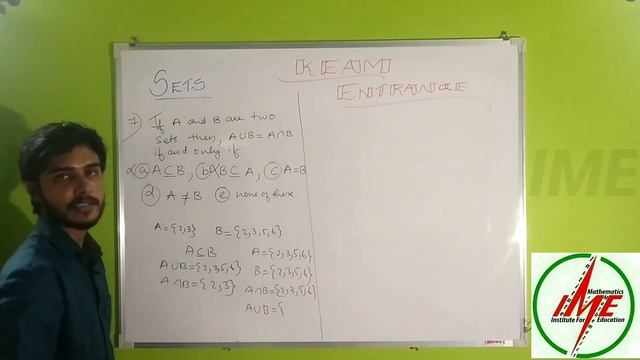 KEAM
ENTRANCE
SETS
7) If A and B are two
sets then, A∪B = A∩B
if and only if
(a) A ⊆ B, (b) B ⊆ A, (c) A=B
(d) A ≠ B (e) none of these
A={2,3} B={2,3,5,6}
A⊆B
A∪B={2,3,5,6}
A∩B={2,3}
A={2,3,5,6}
B={2,3,5,6}
A∩B={2,3,5,6}
A∪B={
IME
Mathematics
IME
Institute For Education